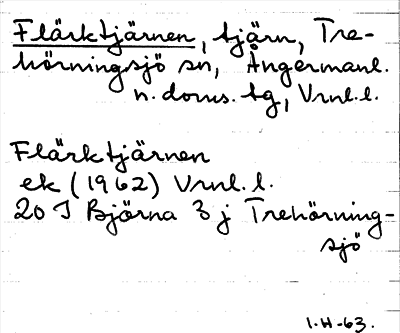 Flärktjärnen, tjärn, Tre-
hörningsjö sn, Ångermanl.
n. doms. tg, Vrnl. l.
Flärktjärnen
ek (1962) Vrnl. l.
20 I Björna 3 j Trehörning-
sjö
1-H-63.